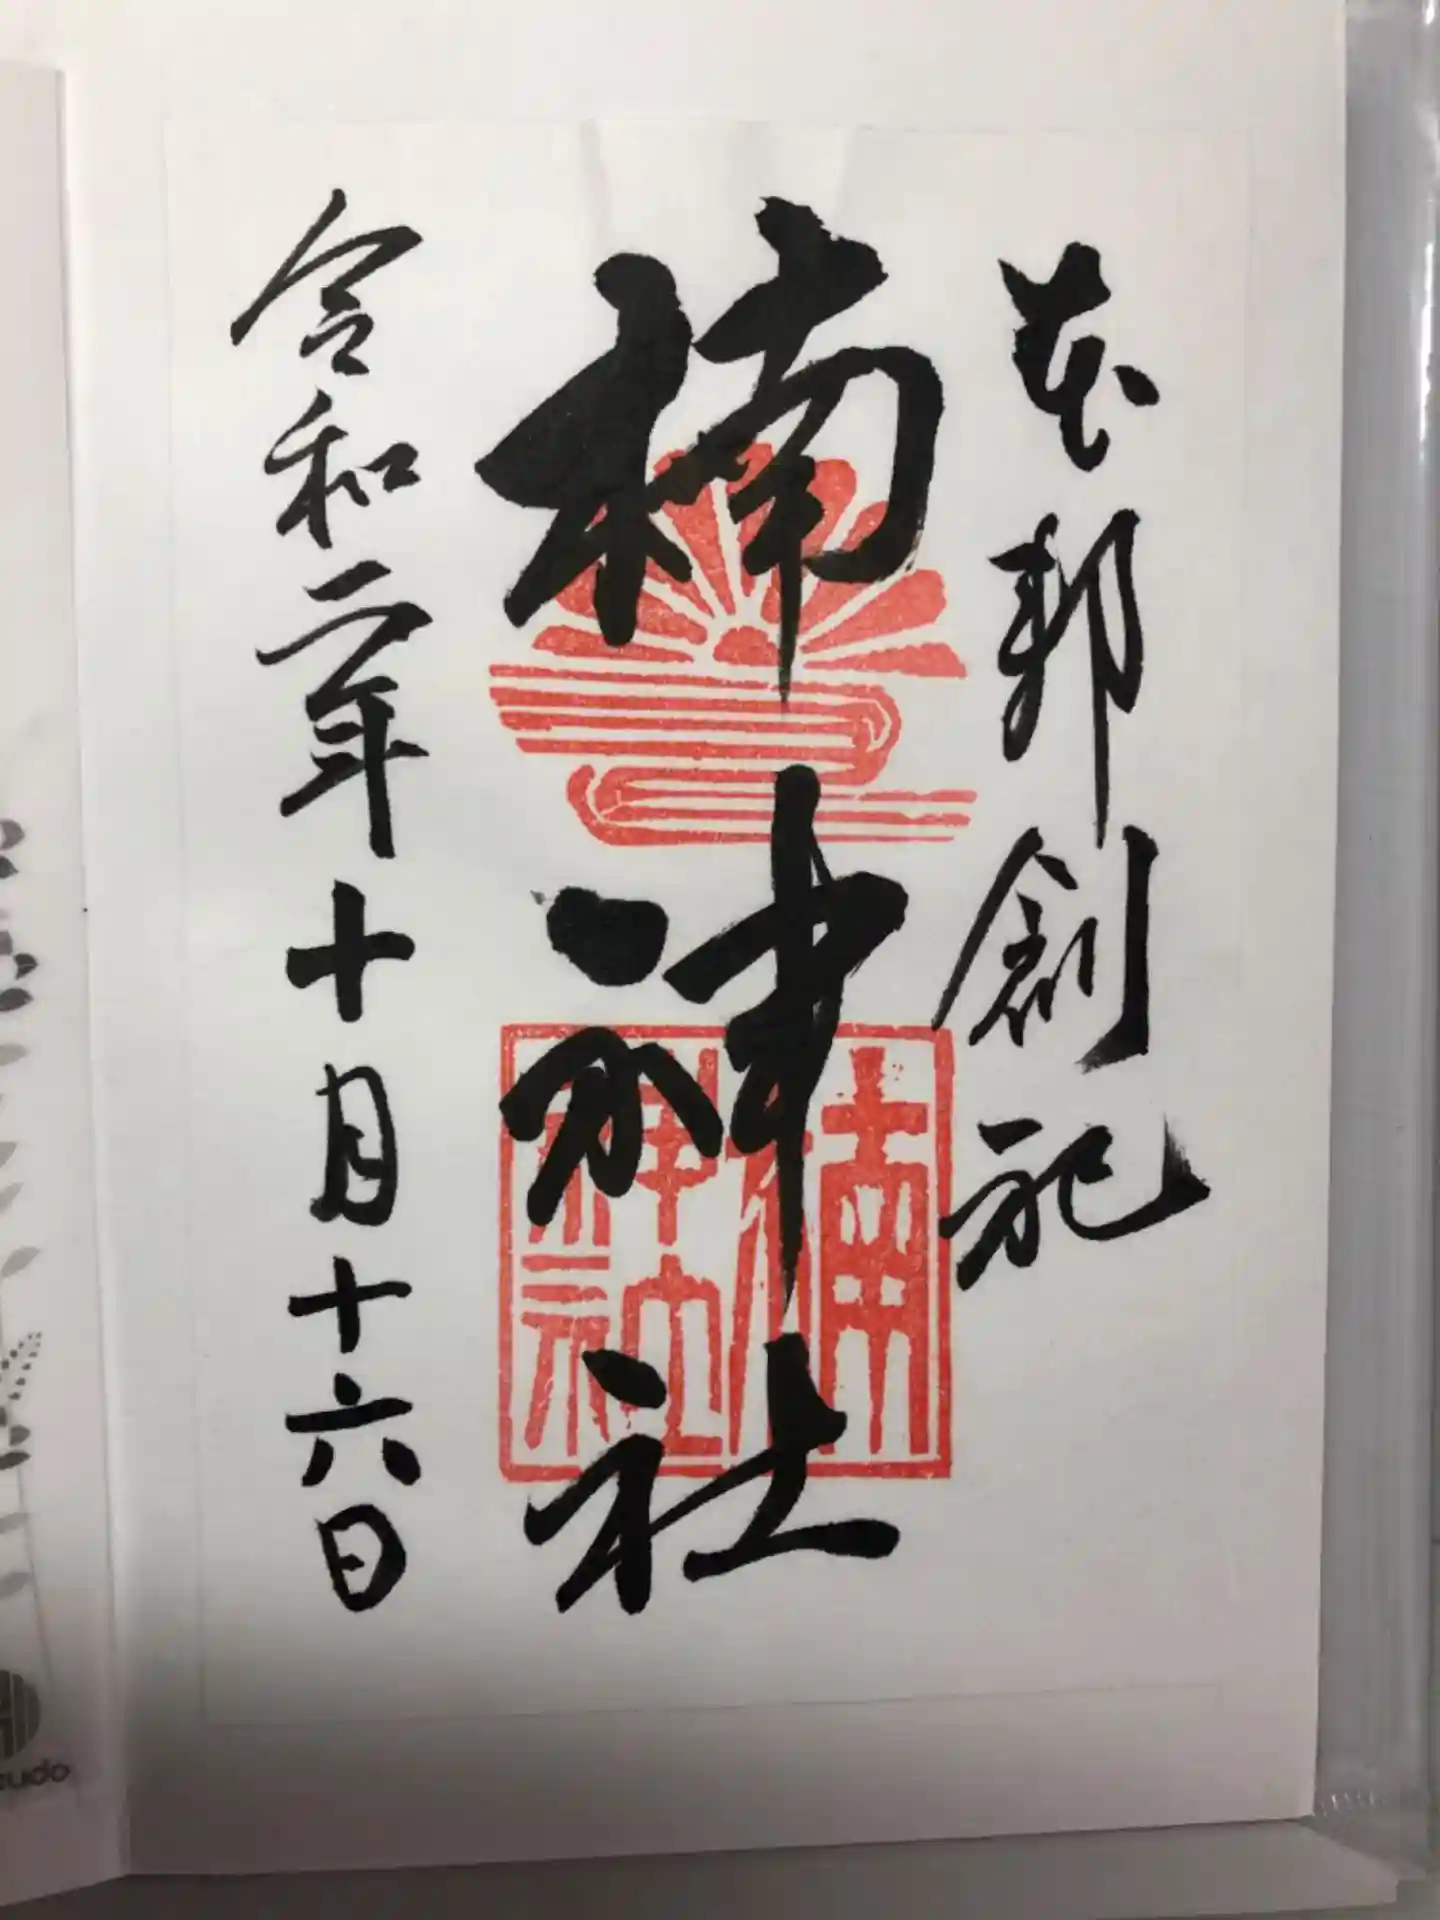 本邦創祀
楠神社
令和二年十月十六日
楠
神社
zudo